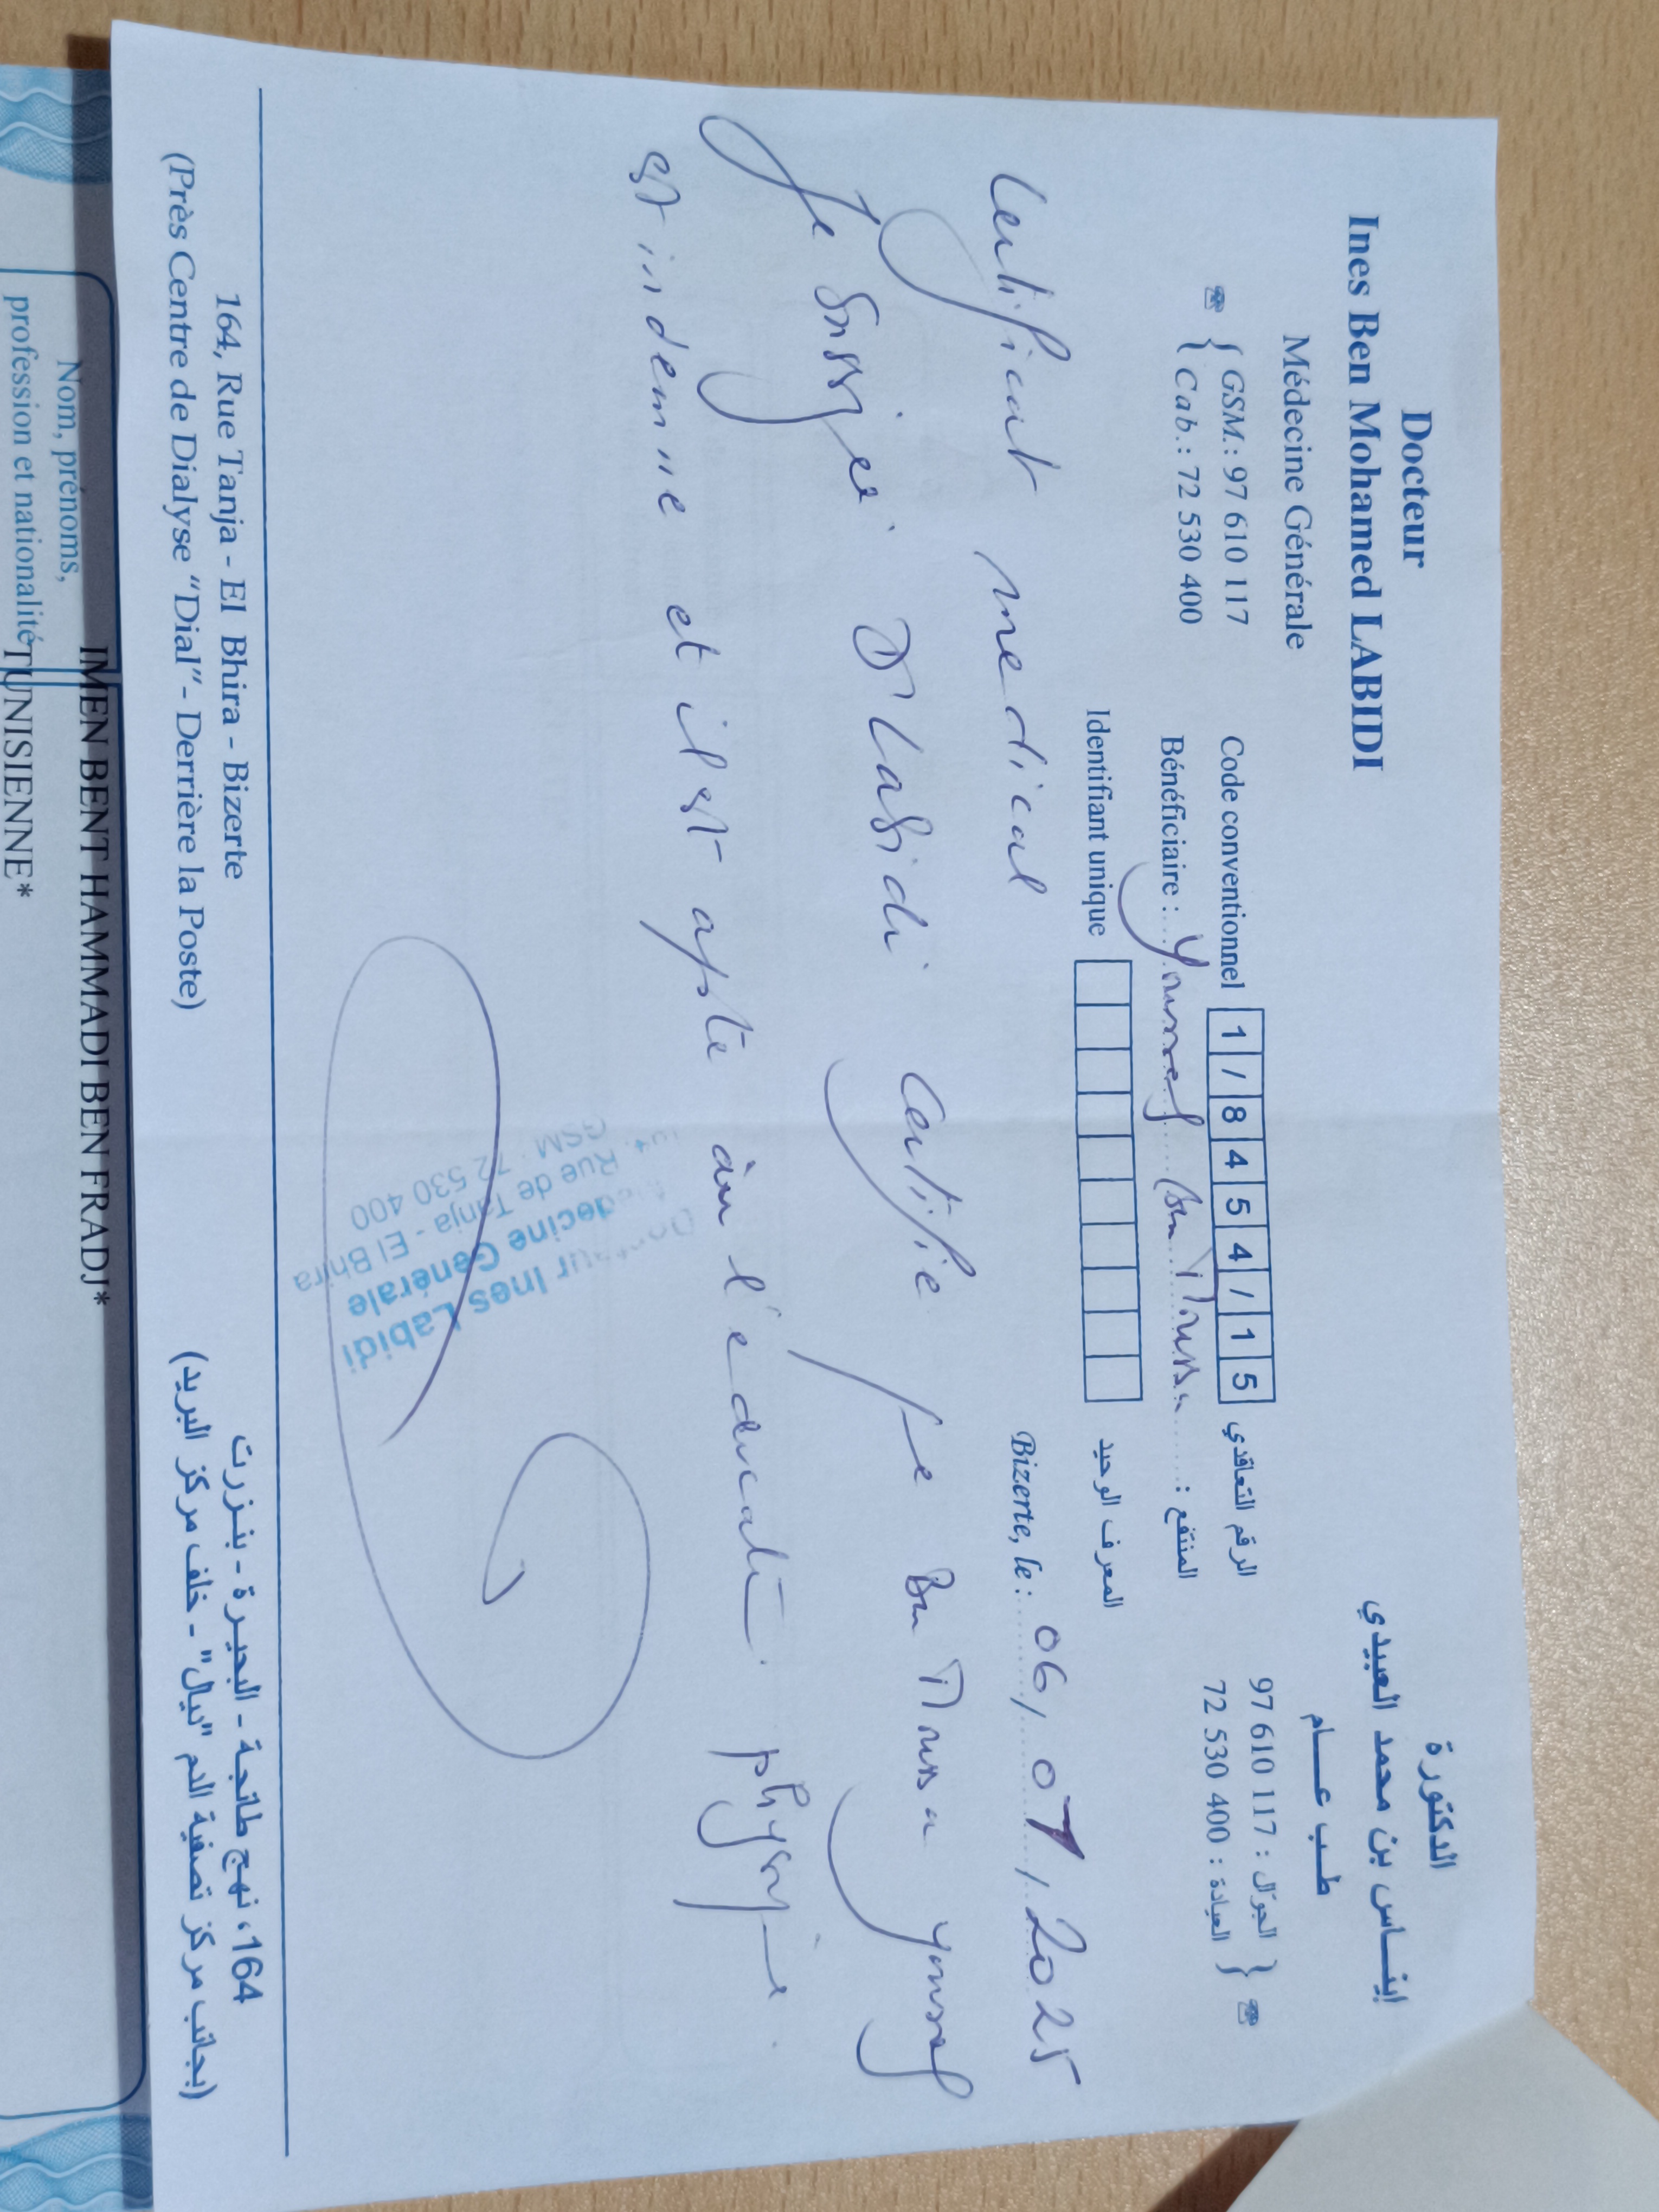 Docteur
Ines Ben Mohamed LABIDI
Médecine Générale
GSM.: 97 610 117
Cab.: 72 530 400
الدكتورة
إينـــاس بن محمد العبيدي
طـب عـــام
الجوّال : 117 610 97
العيادة : 400 530 72
Code conventionnel 1/8454/15 الرقم التعاقدي
Bénéficiaire : Youssef Ben Moussa المنتفع :
Identifiant unique المعرف الوحيد
Bizerte, le : 06/07/2025
Certificat medical
Je Sussigé Dr Labidi Certifie que Ben Moussa Youssef
est indemne et il est apte à l'éducati physique.
Docteur Ines Labidi
Médecine Générale
Rue de Tanja - El Bhira
GSM : 72 530 400
164, Rue Tanja - El Bhira - Bizerte
(Près Centre de Dialyse "Dial"- Derrière la Poste)
164، نهج طانجة - البحيرة - بنـزرت
(بجانب مركز تصفية الدم "ديال" - خلف مركز البريد)
Nom, prénoms,
profession et nationalité
IMEN BENT HAMMADI BEN FRADJ*
TUNISIENNE*